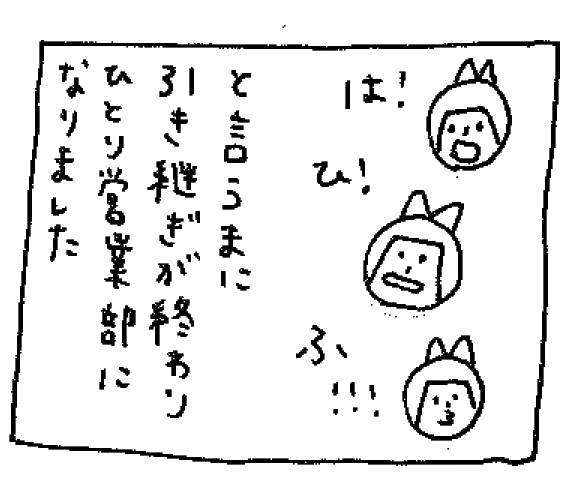 は!
ひ!
ふ、
!!!
と言うまに
引き継ぎが終わり
ひとり営業部に
なりました